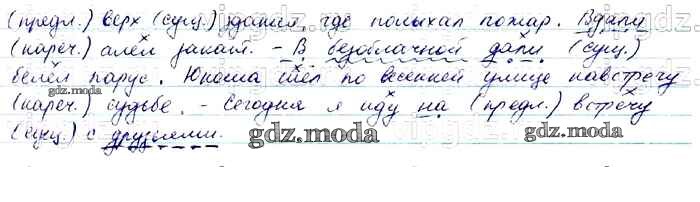 (предл.) верх (сущ.) здания, где полыхал пожар. Вдали
(нареч.) алел закат. - В безоблачной дали (сущ.)
белел парус. Юноша шёл по весенней улице навстречу
(нареч.) судьбе. - Сегодня я иду на (предл.) встречу
(сущ.) с друзьями.
gdz.moda
gdz.moda
gdz.moda